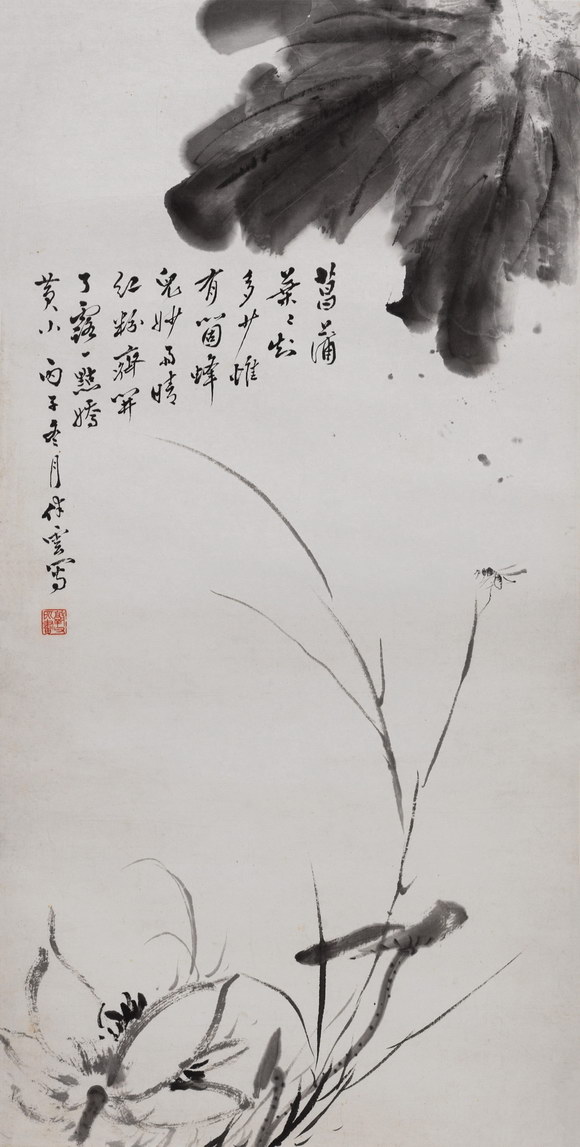 菖蒲
葉〻知
多少惟
有箇蜂
兒妙雨晴
紅粉齊開
了露一點嬌
黃小 丙子冬月 雲寫